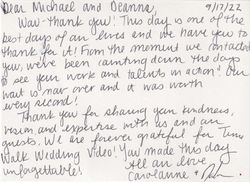 Dear Michael and Deanna, 9/17/22
Wow - thank you! This day is one of the
best days of our lives and we have you to
thank for it! From the moment we contacted
you, we've been counting down the days
to see your work and talents in action! Our
wait is now over and it was worth
every second!
Thank you for sharing your kindness,
vision and expertise with us and our
guests. We are forever grateful for Tum
Walk Wedding Video! You made this day
unforgettable! All our love,
Carolanne &